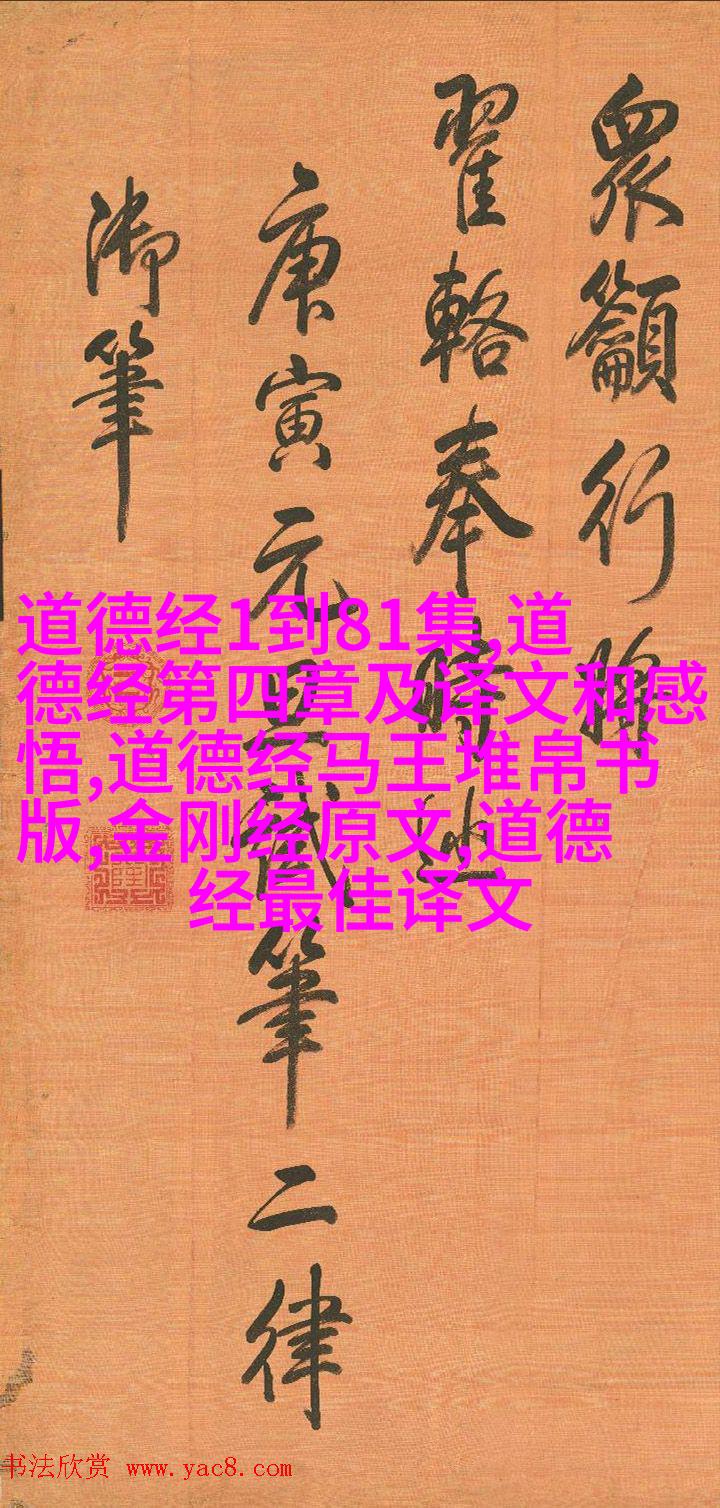 衆籲行穆
翟輅奉時巡
庚寅元旦試筆二律
御筆
道德经1到81集,道
德经第四章及译文和感
悟,道德经马王堆帛书
版,金刚经原文,道德
经最佳译文
书法欣赏 www.yac8.com